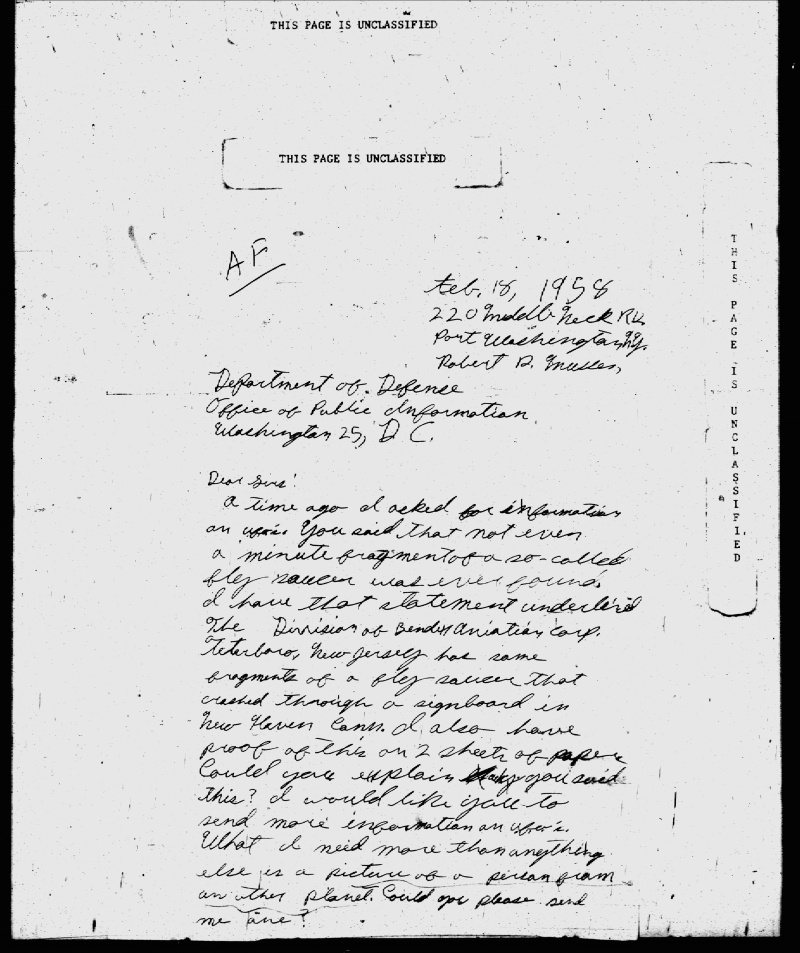 THIS PAGE IS UNCLASSIFIED
THIS PAGE IS UNCLASSIFIED
THIS PAGE IS UNCLASSIFIED
AF
Feb. 18, 1958
220 Middle Neck Rd.
Port Washington, N.Y.
Robert
Department of Defense
Office of Public Information
Washington 25, D C.
Dear Sirs:
A time ago I asked for information
on ufo's. You said that not even
a minute fragment of a so-called
fly saucer was ever found.
I have that statement underlined
The Division of Bendex Aviation Corp.
Teterboro, New Jersey has some
fragments of a fly saucer that
crashed through a signboard in
New Haven Conn. I also have
proof of this on 2 sheets of paper
Could you explain why you said
this? I would like you to
send more information on ufo's.
What I need more than anything
else is a picture of a person from
an other planet. Could you please send
me one?